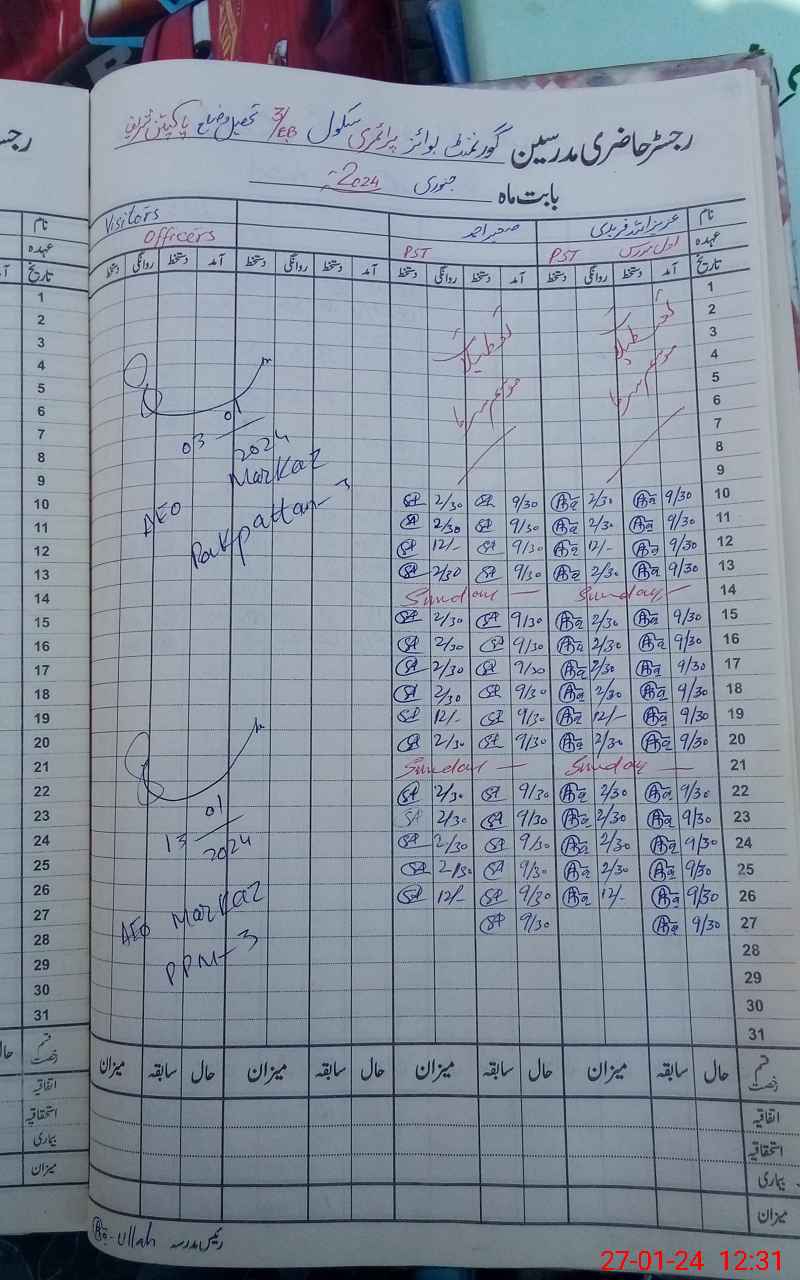 رجسٹر حاضری مدرسین گورنمنٹ بوائز پرائمری سکول 3/EB تحصیل و ضلع پاکپتن شریف
بابت ماہ جنوری 2024
نام عزیز اللہ فریدی صغیر احمد Visitors
عہدہ PST PST Officers
تاریخ آمد دستخط روانگی دستخط آمد دستخط روانگی دستخط آمد دستخط روانگی دستخط آمد دستخط روانگی دستخط
1
2
3 تعطیلات تعطیلات
4
5 موسم سرما موسم سرما
6
7
8
9
03/01/2024
AEO Markaz
Pakpattan-3
10 9/30 2/30 9/30 2/30
11 9/30 2/30 9/30 2/30
12 9/30 12/- 9/30 12/-
13 9/30 2/30 9/30 2/30
14 Sunday Sunday
15 9/30 2/30 9/30 2/30
16 9/30 2/30 9/30 2/30
17 9/30 2/30 9/30 2/30
18 9/30 2/30 9/30 2/30
19 9/30 12/- 9/30 12/-
20 9/30 2/30 9/30 2/30
21 Sunday Sunday
22 9/30 2/30 9/30 2/30
23 9/30 2/30 9/30 2/30
24 9/30 2/30 9/30 2/30
25 9/30 2/30 9/30 2/30
26 9/30 12/- 9/30 12/-
27 9/30 9/30
28
29
30
31
13/01/2024
AEO Markaz
PPN-3
قسم رخصت حال سابقہ میزان حال سابقہ میزان حال سابقہ میزان حال سابقہ میزان
اتفاقیہ
استحقاقیہ
بیماری
میزان
رئیس مدرسہ Ullah
27-01-24 12:31